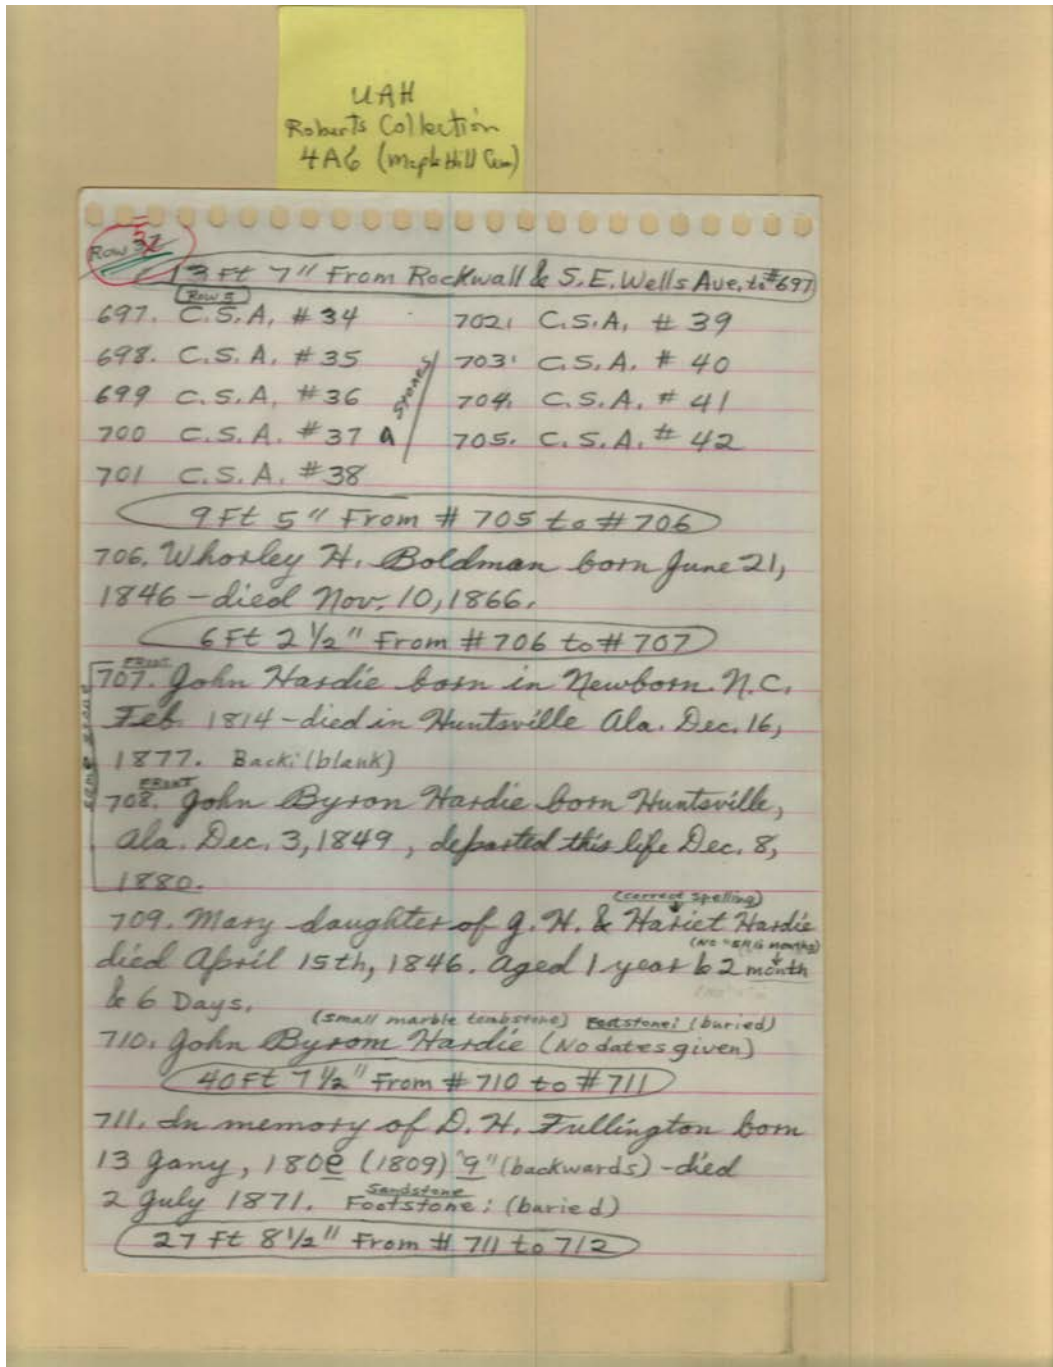 UAH
Roberts Collection
4A6 (Maple Hill Cem)
Row 37 5
3 Ft 7" From Rockwall & S.E. Wells Ave. to #697
Row 5
697. C.S.A. #34
698. C.S.A. #35
699 C.S.A. #36
700 C.S.A. #37
701 C.S.A. #38
Stones
702. C.S.A. #39
703. C.S.A. #40
704. C.S.A. #41
705. C.S.A. #42
9 Ft 5" From #705 to #706
706. Whorley H. Boldman born June 21,
1846 - died Nov. 10, 1866.
6 Ft 2 1/2" From #706 to #707
same stone
Front
707. John Hardie born in Newborn. N.C.
Feb. 1814 - died in Huntsville Ala. Dec. 16,
1877. Back: (blank)
Front
708. John Byron Hardie born Huntsville,
Ala. Dec. 3, 1849, departed this life Dec. 8,
1880.
(correct spelling)
709. Mary daughter of J. H. & Hariet Hardie
(No "S" months)
died April 15th, 1846. aged 1 year & 2 month
& 6 Days.
(small marble tombstone) Footstone: (buried)
710. John Byrom Hardie (No dates given)
40 Ft 7 1/2" From #710 to #711
711. In memory of D. H. Fullington born
13 Jany, 180e (1809) "9" (backwards) - died
2 July 1871. Sandstone Footstone: (buried)
27 Ft 8 1/2" From #711 to 712